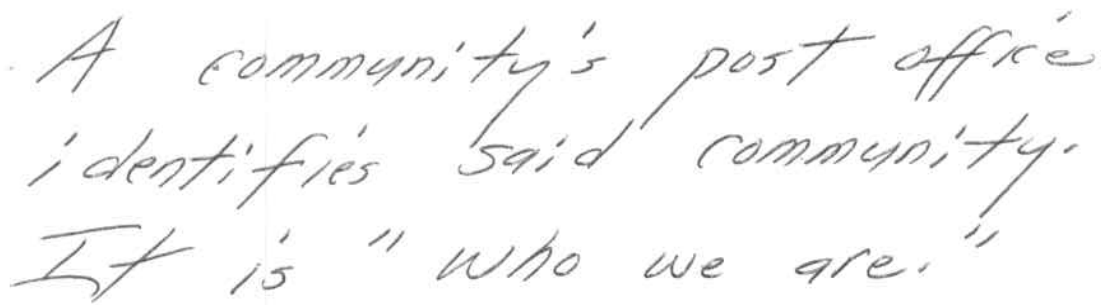 A community's post office
identifies said community.
It is "who we are."